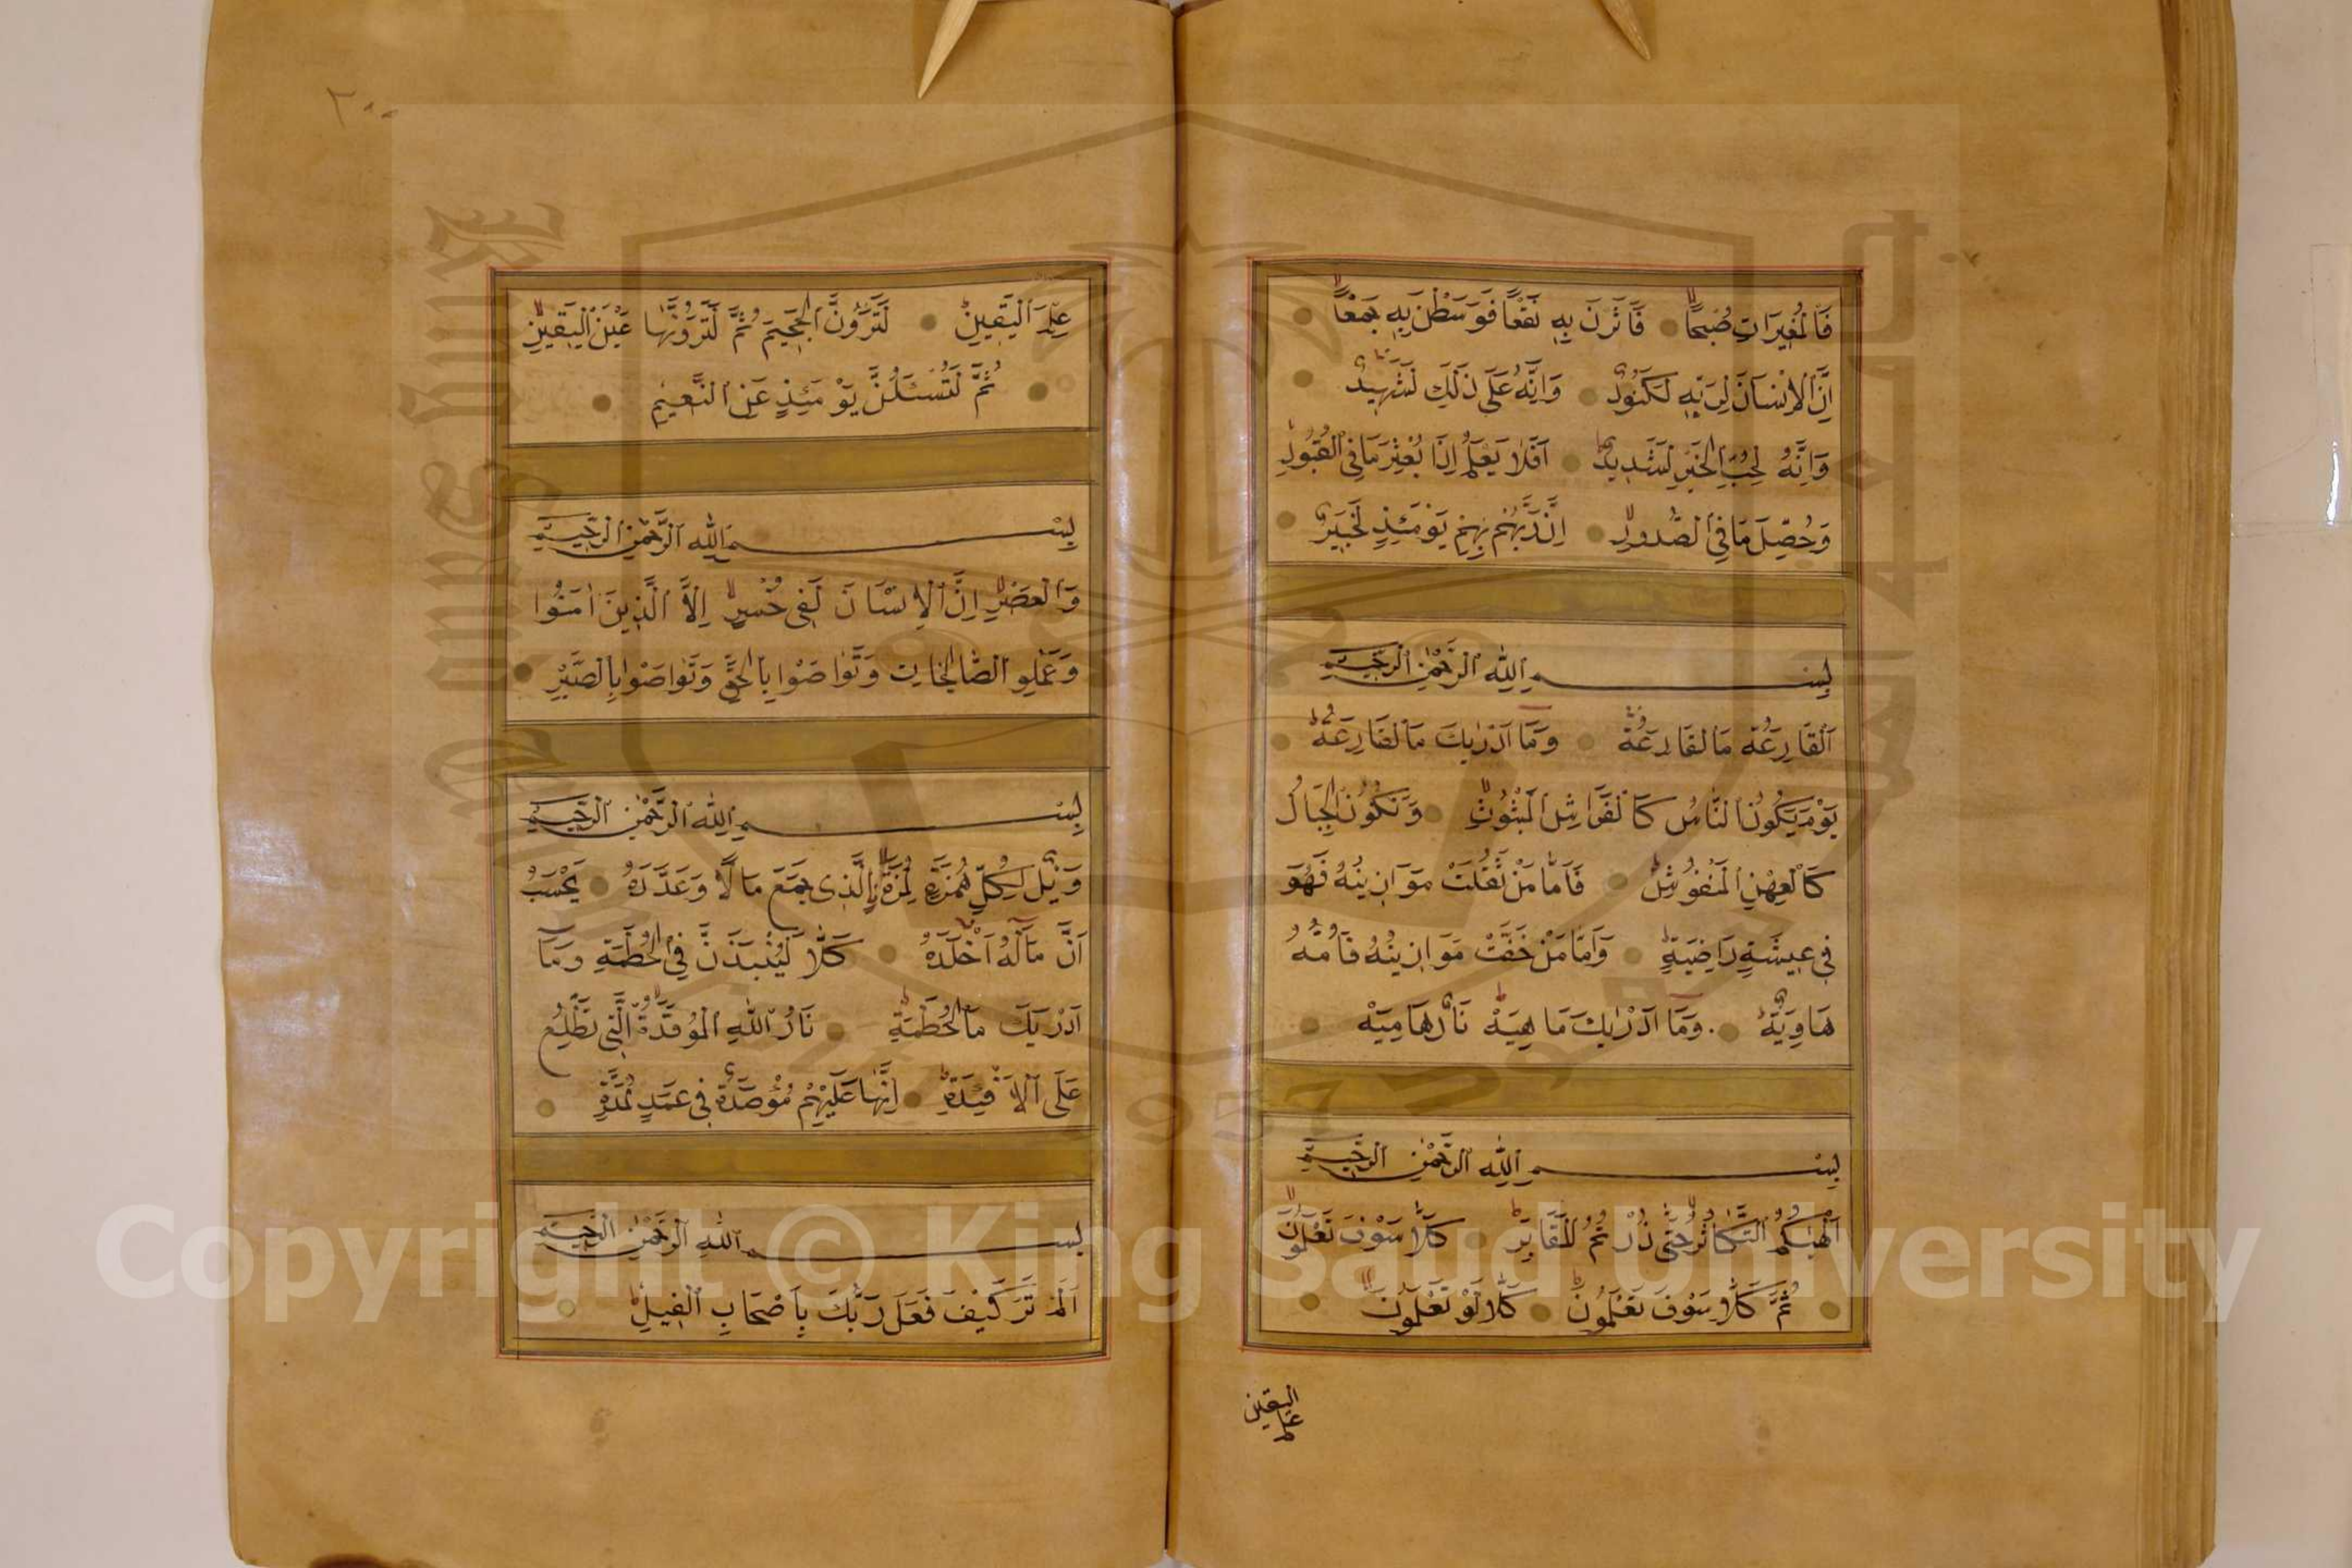 فَالْمُغِيرَاتِ صُبْحًا فَأَثَرْنَ بِهِ نَقْعًا فَوَسَطْنَ بِهِ جَمْعًا
اِنَّ الْاِنْسَانَ لِرَبِّهِ لَكَنُودٌ وَاِنَّهُ عَلَى ذَلِكَ لَشَهِيدٌ
وَاِنَّهُ لِحُبِّ الْخَيْرِ لَشَدِيدٌ اَفَلَا يَعْلَمُ اِذَا بُعْثِرَ مَا فِى الْقُبُورِ
وَحُصِّلَ مَا فِي الصُّدُورِ اِنَّ رَبَّهُمْ بِهِمْ يَوْمَئِذٍ لَخَبِيرٌ
بِسْمِ اللّٰهِ الرَّحْمٰنِ الرَّحِيمِ
اَلْقَارِعَةُ مَا لْقَارِعَةُ وَمَا اَدْرٰيكَ مَا لْقَارِعَةُ
يَوْمَ يَكُونُ النَّاسُ كَالْفَرَاشِ الْمَبْثُوثِ وَتَكُونُ الْجِبَالُ
كَالْعِهْنِ الْمَنْفُوشِ فَاَمَّا مَنْ ثَقُلَتْ مَوَازِينُهُ فَهُوَ
فِي عِيشَةٍ رَاضِيَةٍ وَاَمَّا مَنْ خَفَّتْ مَوَازِينُهُ فَاُمُّهُ
هَاوِيَةٌ وَمَا اَدْرٰيكَ مَا هِيَهْ نَارٌ حَامِيَةٌ
بِسْمِ اللّٰهِ الرَّحْمٰنِ الرَّحِيمِ
اَلْهٰيكُمُ التَّكَاثُرُ حَتّٰى زُرْتُمُ الْمَقَابِرَ كَلَّا سَوْفَ تَعْلَمُونَ
ثُمَّ كَلَّا سَوْفَ تَعْلَمُونَ كَلَّا لَوْ تَعْلَمُونَ
علم اليقين
٢٨٨
عِلْمَ الْيَقِينِ لَتَرَوُنَّ الْجَحِيمَ ثُمَّ لَتَرَوُنَّهَا عَيْنَ الْيَقِينِ
ثُمَّ لَتُسْئَلُنَّ يَوْمَئِذٍ عَنِ النَّعِيمِ
بِسْمِ اللّٰهِ الرَّحْمٰنِ الرَّحِيمِ
وَالْعَصْرِ اِنَّ الْاِنْسَانَ لَفِى خُسْرٍ اِلَّا الَّذِينَ اٰمَنُوا
وَعَمِلُو الصَّالِحَاتِ وَتَوَاصَوْا بِالْحَقِّ وَتَوَاصَوْا بِالصَّبْرِ
بِسْمِ اللّٰهِ الرَّحْمٰنِ الرَّحِيمِ
وَيْلٌ لِكُلِّ هُمَزَةٍ لُمَزَةٍ الَّذِى جَمَعَ مَالًا وَعَدَّدَهُ يَحْسَبُ
اَنَّ مَالَهُ اَخْلَدَهُ كَلَّا لَيُنْبَذَنَّ فِي الْحُطَمَةِ وَمَا
اَدْرٰيكَ مَا الْحُطَمَةُ نَارُ اللّٰهِ الْمُوقَدَةُ الَّتِى تَطَّلِعُ
عَلَى الْاَفْئِدَةِ اِنَّهَا عَلَيْهِمْ مُؤْصَدَةٌ فِي عَمَدٍ مُمَدَّدَةٍ
بِسْمِ اللّٰهِ الرَّحْمٰنِ الرَّحِيمِ
اَلَمْ تَرَ كَيْفَ فَعَلَ رَبُّكَ بِاَصْحَابِ الْفِيلِ
Copyright © King Saud University
King Saud University
1957